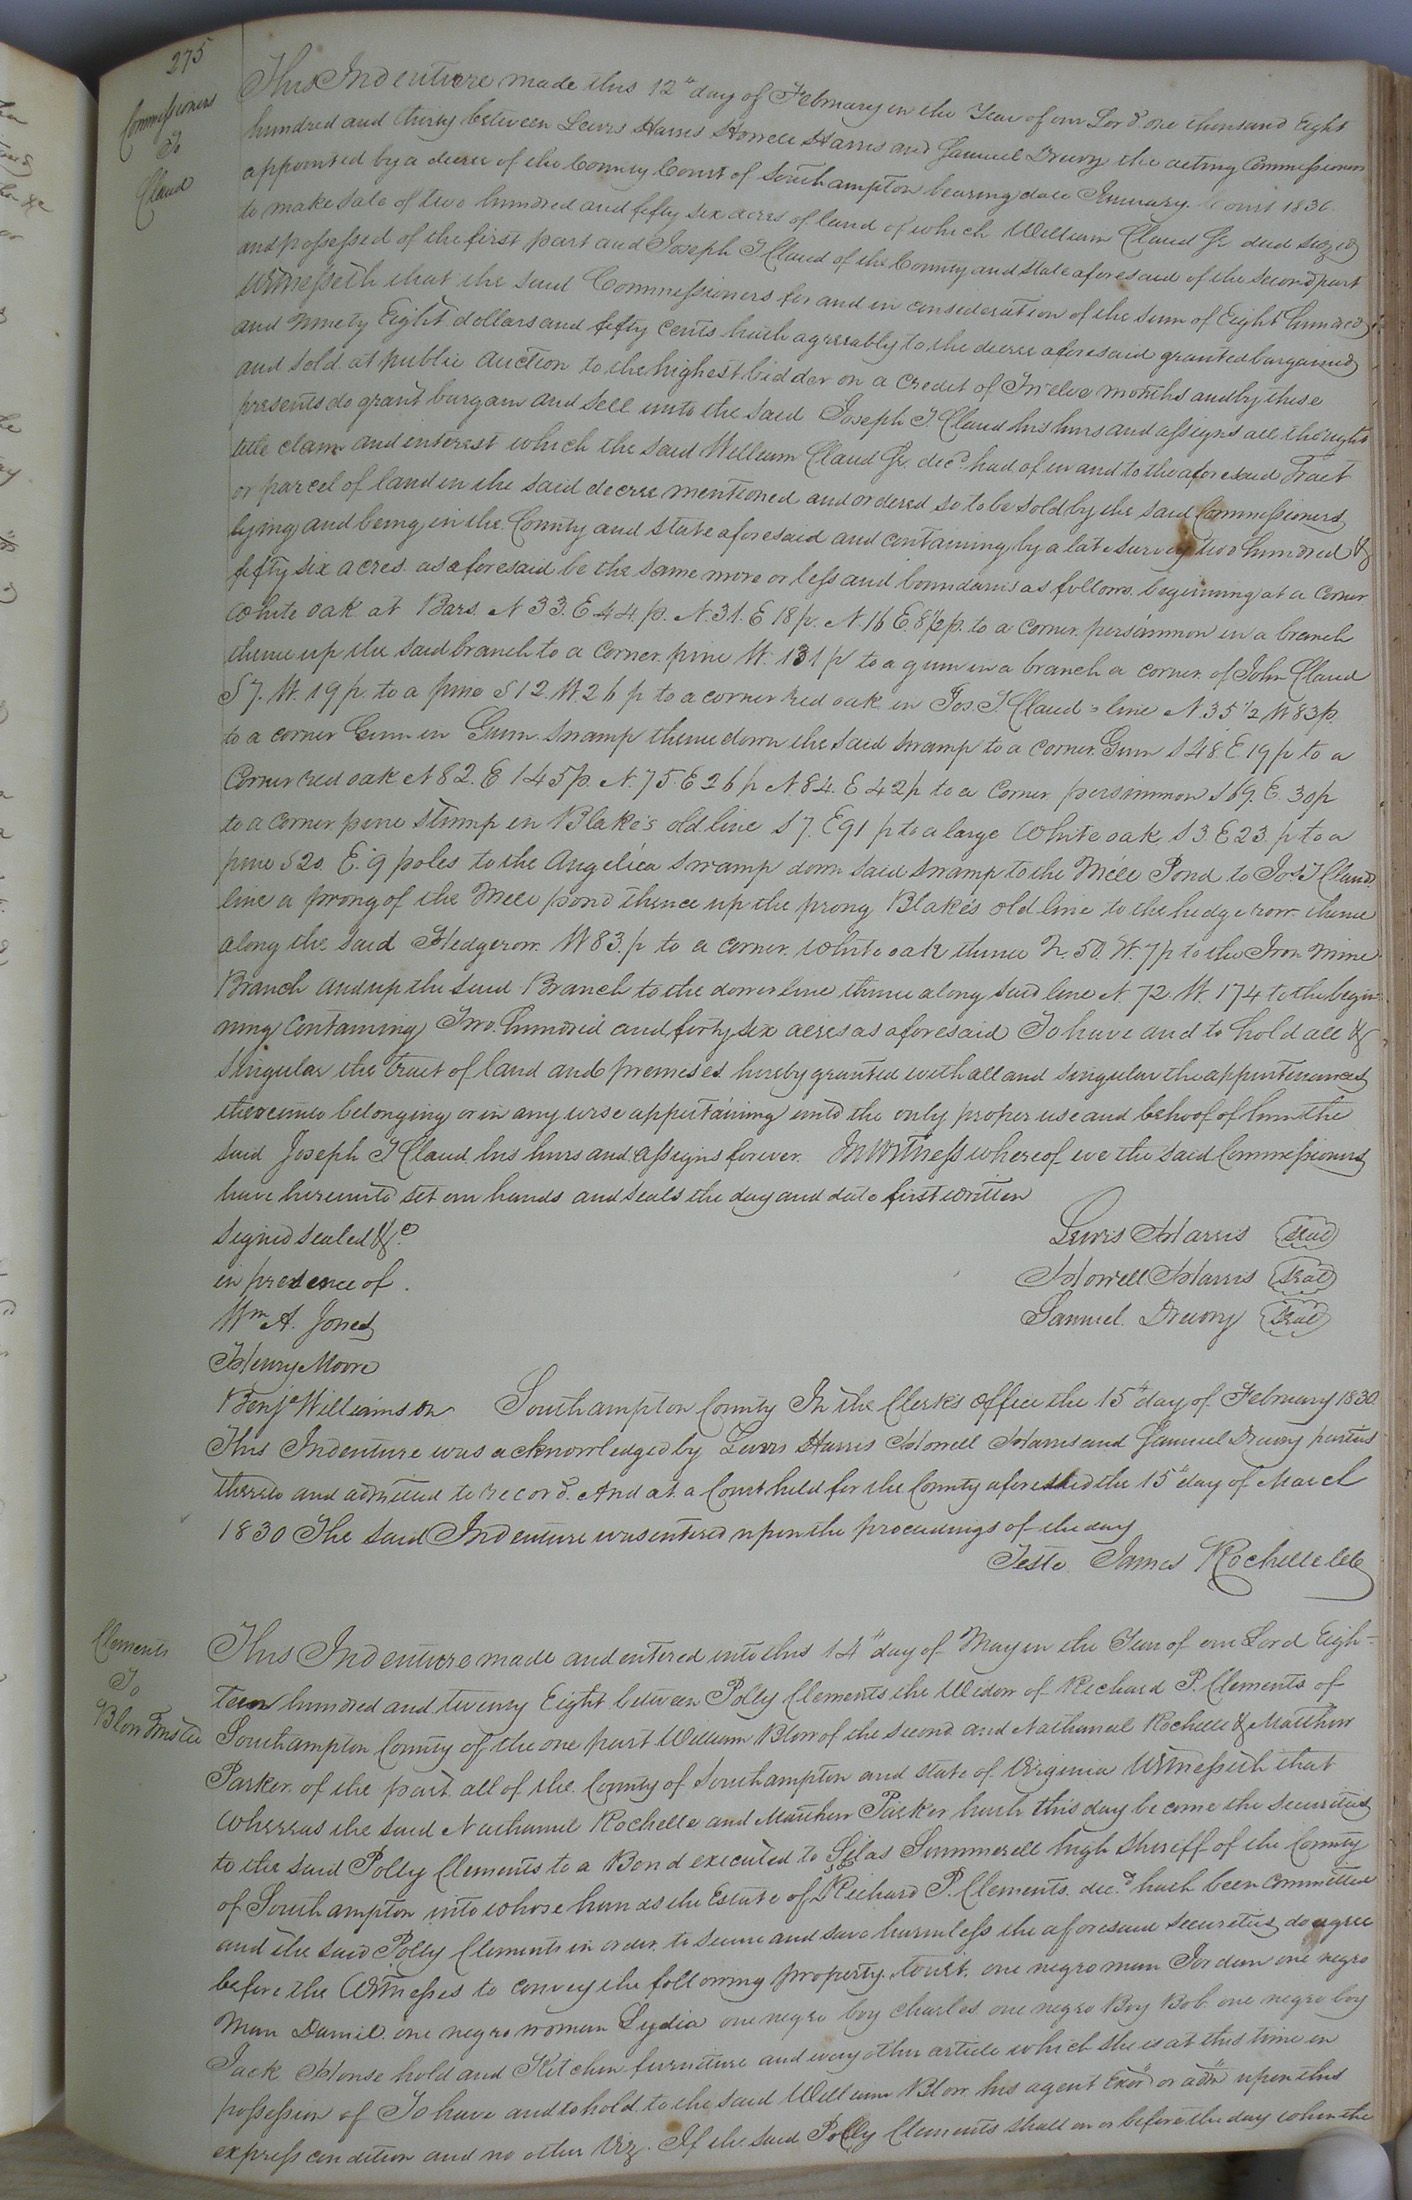 275
Commissioners
To
Claud
This Indenture made this 12th day of February in the Year of our Lord one thousand Eight
hundred and thirty between Lewis Harris Howell Harris and Samuel Drewry the acting Commissioners
appointed by a decree of the County Court of Southampton bearing date January Court 1830
to make sale of two hundred and fifty six acres of land of which William Claud Jr. died siezed
and possessed of the first part and Joseph T Claud of the County and state aforesaid of the second part
Witnesseth that the said Commissioners for and in consideration of the sum of Eight hundred
and Ninety Eight dollars and fifty Cents hath agreeably to the decree aforesaid granted bargained
and sold at public Auction to the highest bidder on a credit of Twelve months and by these
presents do grant bargain and sell unto the said Joseph T. Claud his heirs and assigns all the right
title claim and interest which the said William Claud Jr. decd. had of in and to the aforesaid Tract
or parcel of land in the said decree mentioned and ordered so to be sold by the said Commissioners
lying and being in the County and state aforesaid and containing by a late survey two hundred &
fifty six acres as aforesaid be the same more or less and boundaries as follows beginning at a Corner
White oak at Bars. N 33. E 44. p. N. 31. E 18 p. N. 16 E. 8 1/2 p. to a corner persimmon in a branch
thence up the said branch to a corner pine W. 131 p to a gum in a branch a corner of John Claud
S 7. W. 19 p. to a pine S 12. W 26 p to a corner red oak in Jos. T. Claud's line N. 35 1/2 W 83 p.
to a corner Gum in Gum Swamp thence down the said swamp to a corner Gum S 48 E. 19 p to a
Corner red oak N 82. E 145 p. N. 75. E 26 p N. 84. E 42 p to a Corner persimmon S 69. E. 30 p
to a corner pine stump in Blake's old line S 7. E 91 p to a large White oak S 3. E 23. p to a
pine S 20. E. 9 poles to the Angelica Swamp down said swamp to the Mill Pond to Jos. T Claud's
line a prong of the Mill pond thence up the prong Blake's old line to the hedge row thence
along the said Hedgerow W 83. p to a corner White oak thence N. 50. W. 7 p to the Iron Mine
Branch and up the said Branch to the dower line thence along said line N. 72. W. 174 to the begin-
ning Containing Two hundred and forty six acres as aforesaid To have and to hold all &
singular the tract of land and premises hereby granted with all and singular the appurtenances
thereunto belonging or in any wise appertaining unto the only proper use and behoof of him the
said Joseph T Claud his heirs and assigns forever. In Witness whereof we the said Commissioners
have hereunto set our hands and seals the day and date first written
Signed sealed &c
in presence of
Wm A. Jones
Henry Moore
Benja Williamson
Lewis Harris Seal
Howell Harris Seal
Samuel Drewry Seal
Southampton County In the Clerk's office the 15th day of February 1830
This Indenture was acknowledged by Lewis Harris Howell Harris and Samuel Drewry parties
thereto and admitted to record. And at a Court held for the County aforesaid the 15th day of March
1830 The said Indenture was entered upon the proceedings of the day
Teste James Rochelle Clk
Clements
To
Blow Trustee
This Indenture made and entered into this 14th day of May in the Year of our Lord Eigh-
teen hundred and twenty Eight between Polly Clements the Widow of Richard P. Clements of
Southampton County of the one part William Blow of the second and Nathaniel Rochelle & Matthew
Parker of the part all of the County of Southampton and state of Virginia Witnesseth that
Whereas the said Nathaniel Rochelle and Matthew Parker hath this day become the securities
to the said Polly Clements to a Bond executed to Silas Summerell high Sheriff of the County
of Southampton into whose hands the Estate of Richard P. Clements decd. hath been committed
and the said Polly Clements in order to secure and save harmless the aforesaid securities do agree
before the Witnesses to convey the following property towit. one negro man Jordan one negro
Man Daniel one negro woman Lydia one negro boy Charles one negro Boy Bob one negro boy
Jack House hold and Kitchen furniture and every other article which she is at this time in
possession of To have and to hold to the said William Blow his agent Exor or adr upon this
express condition and no other Viz. If the said Polly Clements shall on or before the day when the